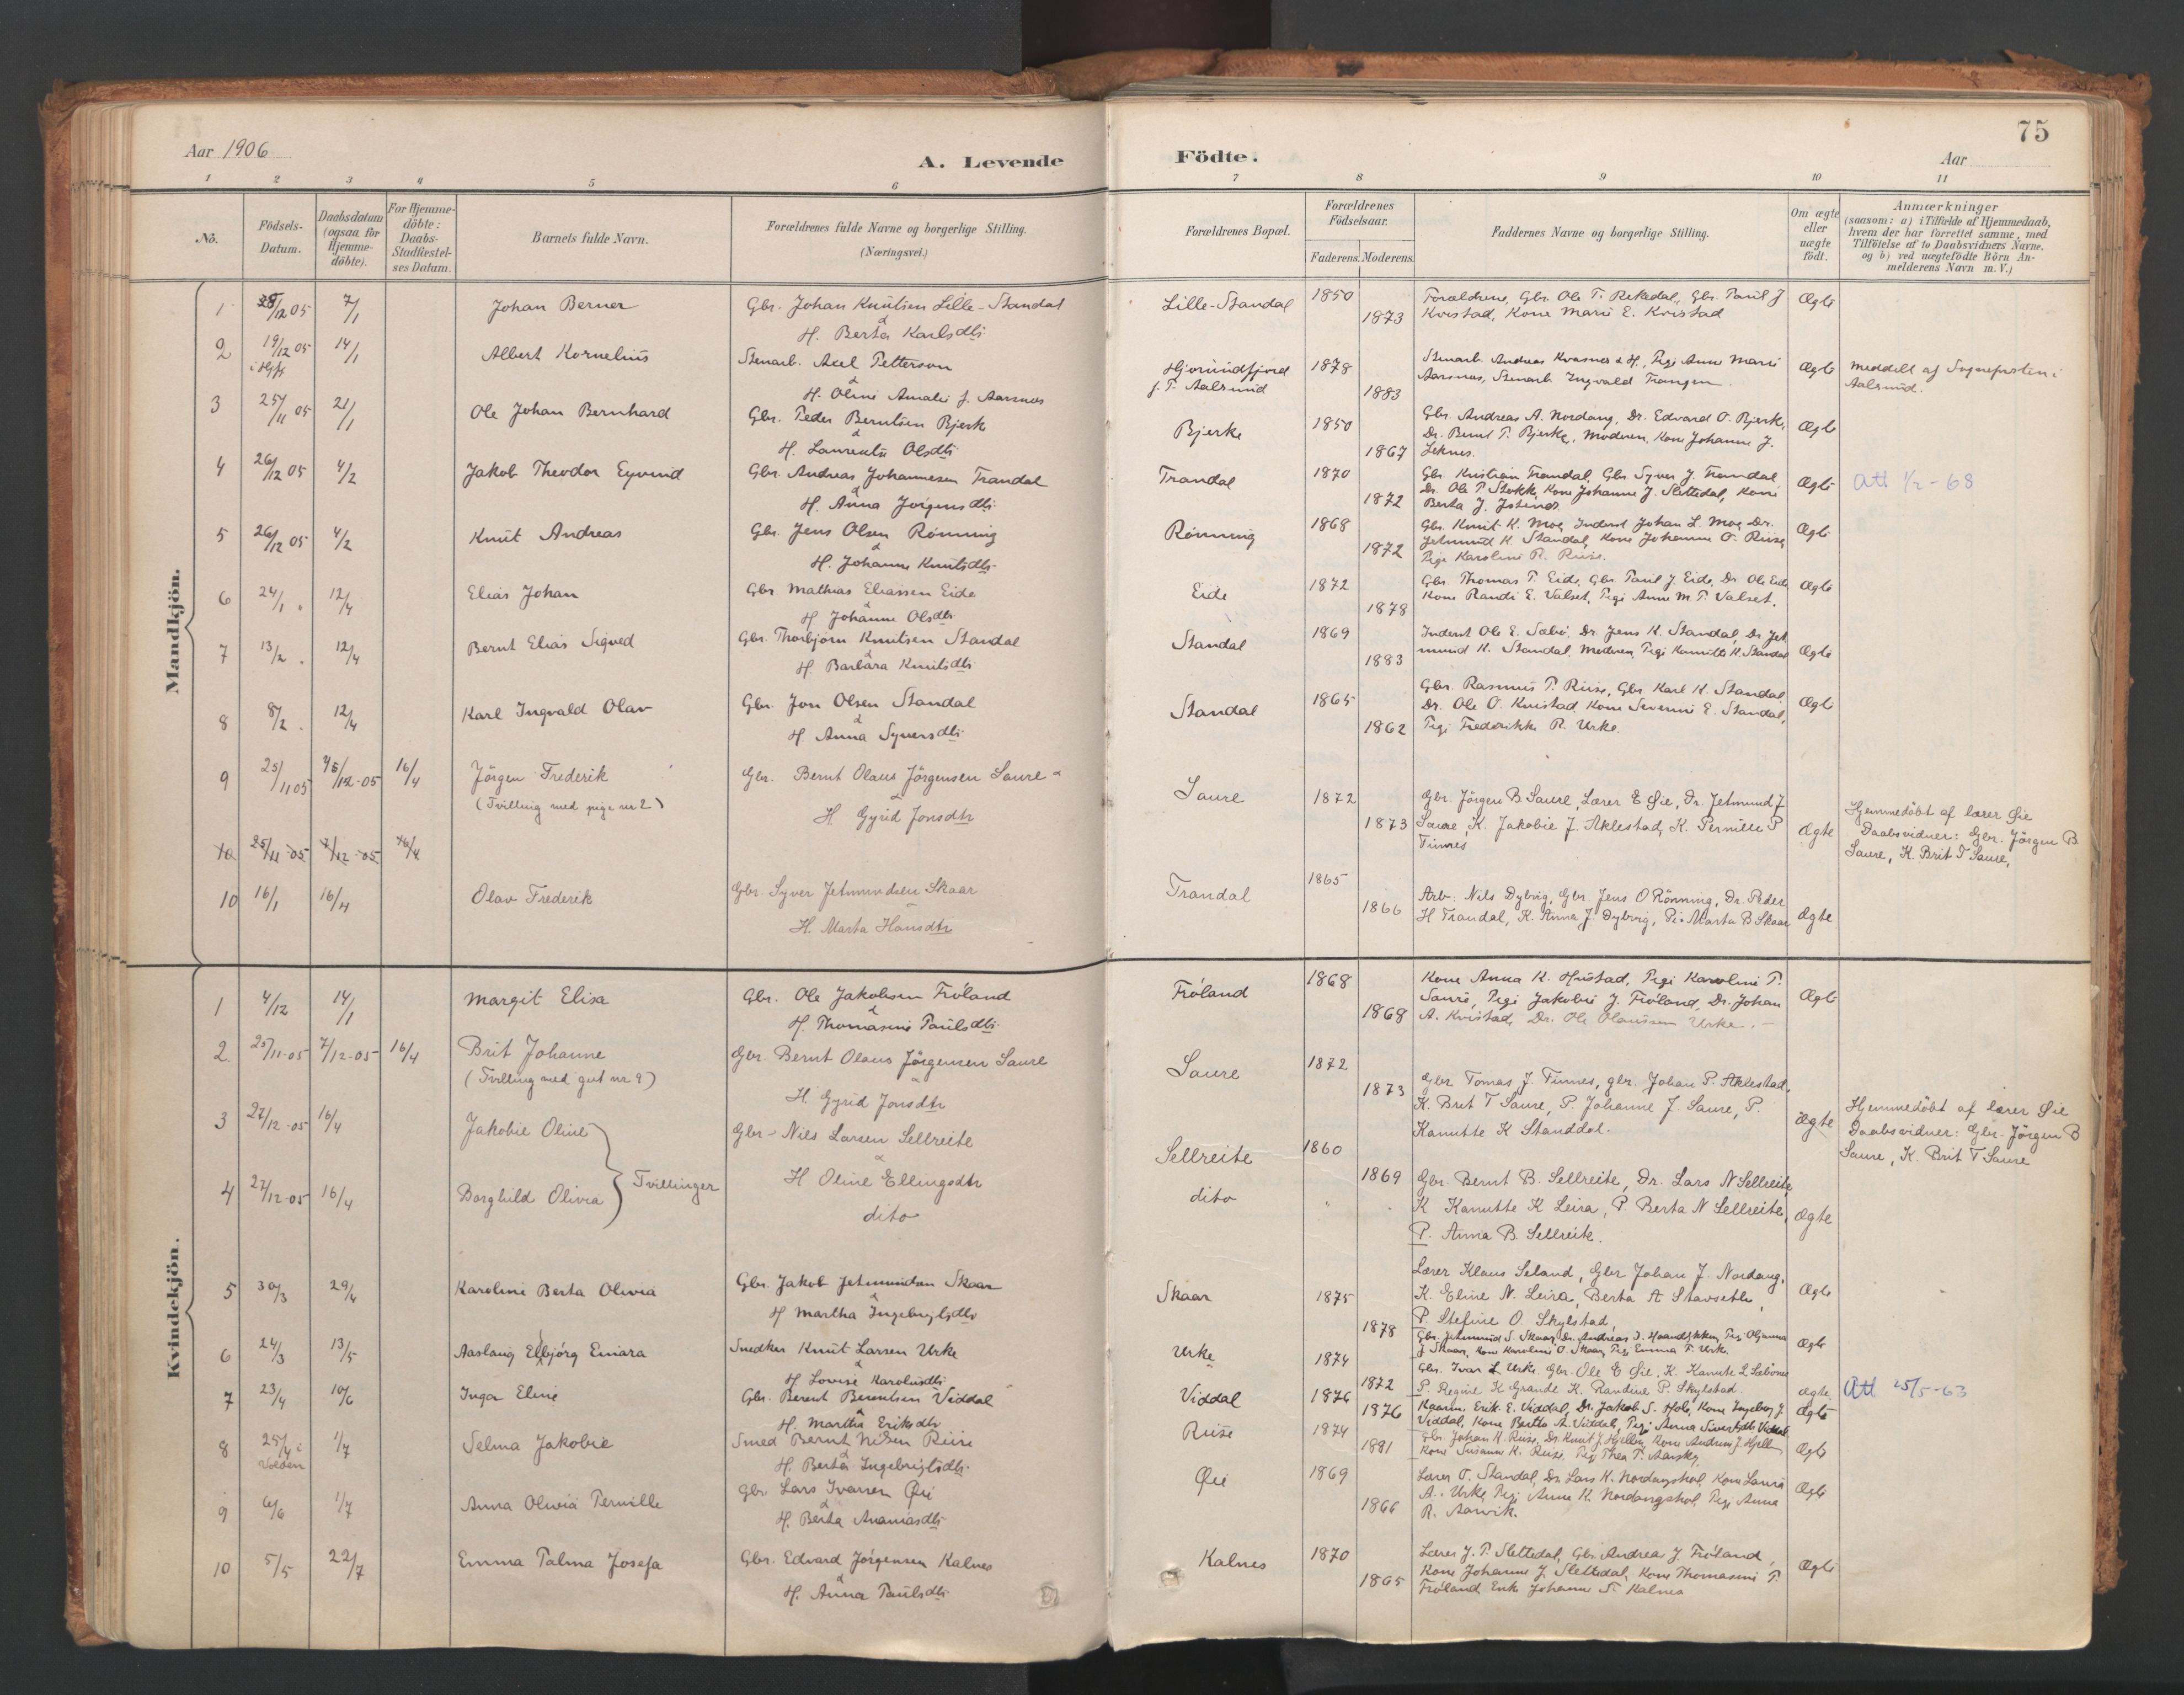 Aar 1906
A. Levende
Födte.
75
Aar
1 2 3 4 5 6 7 8 9 10 11
No.
Födsels-
Datum.
Daabsdatum
(ogsaa for
Hjemme-
döbte).
For Hjemme-
döbte:
Daabs-
Stadfæstel-
ses Datum.
Barnets fulde Navn.
Forældrenes fulde Navne og borgerlige Stilling.
(Næringsvei.)
Forældrenes Bopæl.
Forældrenes
Födselsaar.
Faderens. Moderens.
Faddernes Navne og borgerlige Stilling.
Om ægte
eller
uægte
födt.
Anmærkninger
(saasom: a) i Tilfælde af Hjemmedaab,
hvem der har forrettet samme, med
Tilföielse af to Daabsvidners Navne.
og b) ved uægtefödte Börn An-
melderens Navn m. V.)
Mandkjön.
1 28/12 05 7/1 Johan Berner Gbr. Johan Knutsen Lille-Standal
& H. Berta Karlsdtr
Lille-Standal 1850 1873
Forældrene, Gbr. Ole T. Rekedal, Gbr. Paul J
Kvistad, Kone Marie E. Kvistad
Ægte
2 19/12 05 14/1 Albert Kornelius Stenarb. Axel Petterson
& H. Oline Amalie f. Aarsnes
Hjorundfjord
f. T. Aalesund 1878 1883
Stenarb. Andreas Kvasnes & H., Pige Anne Marie
Aarsnes, Stenarb. Ingvald Trangen
Ægte
Meddelt af Sognepresten i
Aalesund.
3 25/11 05 21/1 Ole Johan Bernhard Gbr. Peder Berntsen Bjerke
& H. Laurentse Olsdtr
Bjerke 1850 1867
Gbr. Andreas A. Nordang, Dr. Edvard O. Bjerke,
Dr. Bernt P. Bjerke, Moderen, Kone Johanne J.
Leknes.
Ægte
4 26/12 05 4/2 Jakob Theodor Eyvind Gbr. Andreas Johannesen Trandal
& H. Anna Jørgensdtr
Trandal 1870 1872
Gbr. Kristian Trandal, Gbr. Syver J. Trandal
Dr. Ole P. Stokke, Kone Johanne J. Slettedal, Kone
Berta J.
Ægte
Att 1/2-68
5 26/12 05 4/2 Knut Andreas Gbr. Jens Olsen Rønning
& H. Johanne Knutsdtr
Rønning 1868 1872
Gbr. Knut K. Moe, Inderst Johan L. Moe, Dr.
Jetmund K. Standal, Kone Johanne O. Riise,
Pige Karoline R. Riise.
Ægte
6 24/1 12/4 Elias Johan Gbr. Mathias Eliassen Eide
& H. Johanne Olsdtr
Eide 1872 1878
Gbr. Thomas P. Eide, Gbr. Paul J. Eide, Dr. Ole Eide
Kone Randi E. Valset, Pige Anne M. P. Valset.
Ægte
7 13/2 12/4 Bernt Elias Sigved Gbr. Thorbjørn Knutsen Standal
& H. Barbara Knutsdtr
Standal 1869 1883
Inderst Ole E. Sæbø, Dr. Jens K. Standal, Dr. Jet
mund K. Standal, Moderen, Pige Kanutte K. Standal
Ægte
8 8/2 12/4 Karl Ingvald Olav Gbr. Jon Olsen Standal
& H. Anna Syversdtr
Standal 1865 1862
Gbr. Rasmus P. Riise, Gbr. Karl K. Standal
Dr. Ole O. Kvistad, Kone Severine E. Standal,
Pige Frederikke R. Urke.
Ægte
9 25/11 05 /12-05 16/4 Jörgen Frederik
(Tvilling med pige nr 2)
Gbr. Bernt Olaus Jörgensen Saure &
H. Gyrid Jonsdtr
Saure 1872 1873
Gbr. Jörgen B. Saure, Lærer E Øie, Dr. Jetmund J
Saure, K. Jakobie J. Aklestad, K. Pernille P
Finnes
Ægte
Hjemmedöbt af lærer Øie
Daabsvidner: Gbr. Jörgen B
Saure, K. Brit T Saure,
10 25/11-05 7/12-05 16/4
10 16/1 16/4 Olav Frederik Gbr. Syver Jetmundsen Skaar
H. Marta Hansdtr
Trandal 1865 1866
Arb. Nils Dybvig, Gbr. Jens O Rönning, Dr. Peder
H Trandal, K. Anna J. Dybvig, Pi. Marta B Skaar
Ægte
Kvindekjön.
1 4/12 14/1 Margit Elisa Gbr. Ole Jakobsen Frøland
& H. Thomasine Paulsdtr
Frøland 1868 1868
Kone Anna K. Hustad, Pige Karoline P.
Saure, Pige Jakobie J. Frøland, Dr. Johan
A. Kvistad, Dr. Ole Olaussen Urke.
Ægte
2 25/11-05 7/12-05 16/4 Brit Johanne
(Tvilling med gut nr 9)
Gbr. Bernt Olaus Jörgensen Saure
& H. Gyrid Jonsdtr
Saure 1872 1873
Gbr Tomas J. Finnes, gbr. Johan P. Aklestad,
K. Brit T Saure, P. Johanne J. Saure, P.
Kanutte K Standdal.
Ægte
Hjemmedöbt af lærer Øie
Daabsvidner: Gbr. Jörgen B
Saure, K. Brit T Saure
3 27/12-05 16/4 Jakobie Oline
Gbr. Nils Larsen Sellreite
& H Oline Ellingsdtr
Sellreite 1860 1869
Tvillinger
4 27/12-05 16/4 Borghild Olivia
dito
dito
Gbr. Bernt B. Sellreite, Dr. Lars N Sellreite,
K Kanutte K Leira, P Berta N Sellreite,
P. Anna B. Sellreite.
Ægte
Lærer Klaus Seland, Gbr Johan J. Nordang,
K. Eline N. Leira, Berta A Stavseth,
P. Stefine O. Skylstad
Ægte
5 30/3 29/4 Karoline Berta Olivia Gbr. Jakob Jetmundsen Skaar
& H Martha Ingebrigtsdtr
Skaar 1875 1878
Gbr. Jetmund S. Skaar, Dr. Andreas J. Haandlykken, Pige Oljanna
J. Skaar, Kone Karoline O. Skaar, Pige Emma P. Urke.
Ægte
6 24/3 13/5 Aaslaug Elbjørg Einara Snedker Knut Larsen Urke
& H Lovise Karolusdtr
Urke 1874 1872
Gbr. Ivar L Urke, Gbr. Ole E Øie, K. Kanute L Sæbönes
P. Regine K Grande K. Randine P. Skylstad.
ægte
7 23/4 10/6 Inga Eline Gbr. Berent Berentsen Viddal
& H. Marthe Eriksdtr
Viddal 1876 1876
Kaarm. Erik E. Viddal, Dr. Jakob S. Hole, Kone Ingeborg J.
Viddal, Kone Berthe A. Viddal, Pige Anna Sivertsdtr Viddal
Ægte
Att 25/5-63
8 25/4 i
Volden 1/7 Selma Jakobie Smed Bernt Nilsen Riise
& H. Berta Ingebrigtsdtr
Riise 1874 1881
Gbr. Johan K. Riise, Dr. Knut J. Hjellen, Kone Andrea J. Hjelle
Kone Susanne K. Riise, Pige Thea P. Aarskog.
Ægte
9 6/6 1/7 Anna Olivia Pernille Gbr. Lars Ivarsen Øie
& H. Berta Ananiasdtr
Øie 1869 1866
Lærer O. Standal, Dr. Lars K. Nordangshol, Kone Laura
A. Urke, Pige Anne K. Nordangshol, Pige Anna
R. Aarvik.
Ægte
10 5/5 22/7 Emma Palma Josefa Gbr. Edvard Jørgensen Kalnes
& H. Anna Paulsdtr
Kalnes 1870 1865
Lærer J. P. Slettedal, Gbr. Andrea J. Frøland,
Kone Johanne J. Slettedal, Kone Thomasine P.
Frøland, Enke Johanne S. Kalnes
Ægte